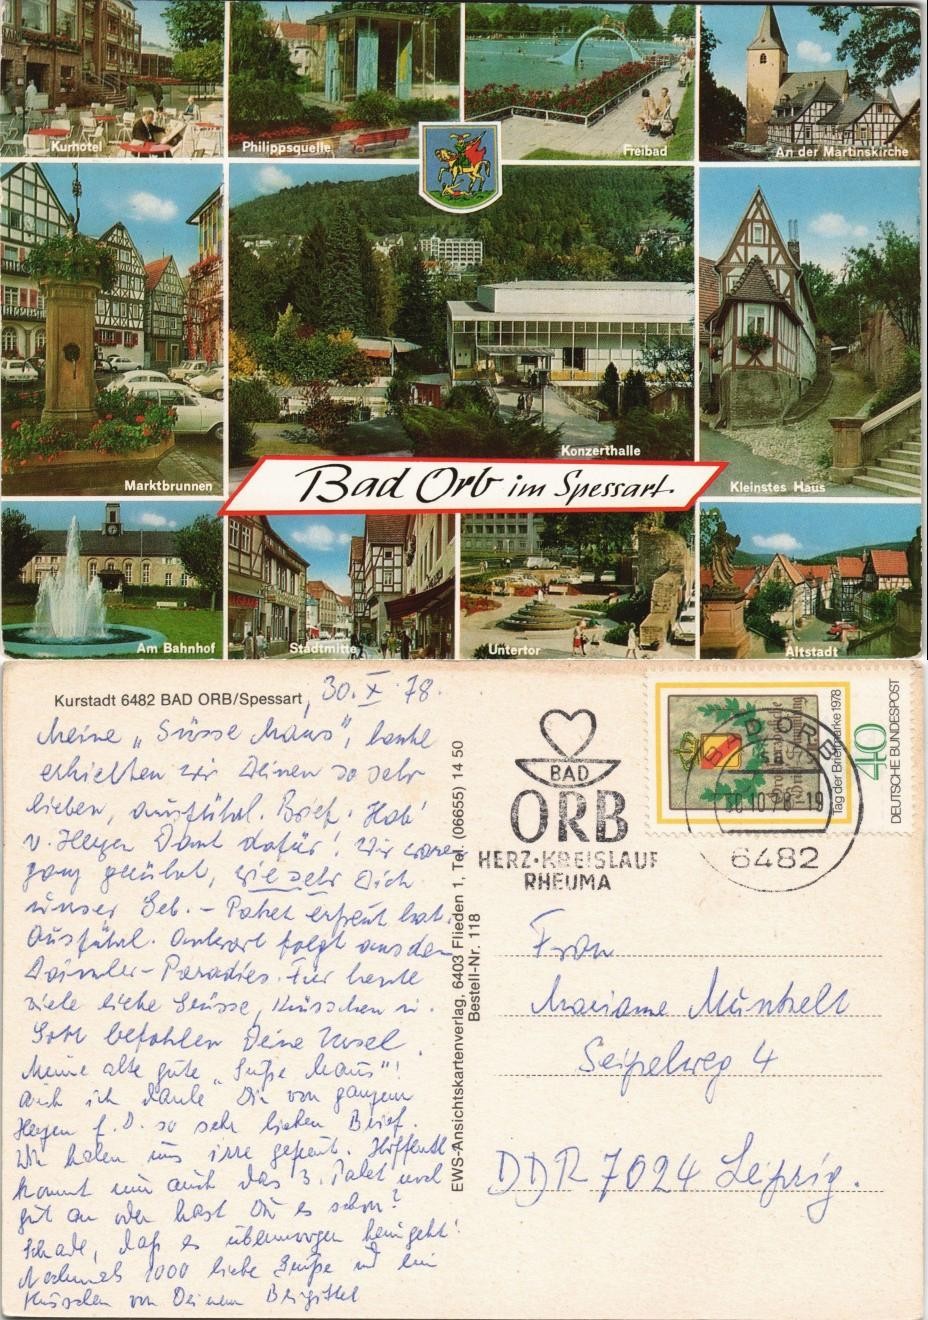 Kurhotel
Philippsquelle
Freibad
An der Martinskirche
Marktbrunnen
Konzerthalle
Kleinstes Haus
Bad Orb im Spessart
Am Bahnhof
Stadtmitte
Untertor
Altstadt
Kurstadt 6482 BAD ORB/Spessart, 30. X. 78.
Meine "Süsse Maus", heute
erhielten wir Deinen so sehr
lieben, ausführl. Brief. Hab'
v. Herzen Dank dafür! Wir waren
ganz gerührt, wie sehr Dich
unser Geb.-Paket erfreut hat.
Ausführl. Antwort folgt aus dem
Daimler-Paradies. Für heute
viele liebe Grüsse, Küsschen u.
Gott befohlen Deine Ursel.
Meine alte gute "Süße Maus"!
Auch ich danke Dir von ganzem
Herzen f. D. so sehr lieben Brief.
Wir haben uns irre gefreut. Hoffentl.
kommt nun auch das 3. Paket noch
gut an oder hast Du es schon?
Schade, daß es übermorgen heim geht!
Nochmals 1000 liebe Grüße und ein
Küsschen von Deinem Brigittel
EWS-Ansichtskartenverlag, 6403 Flieden 1, Tel. (06655) 14 50
Bestell-Nr. 118
BAD
ORB
HERZ·KREISLAUF
RHEUMA
BAD ORB
sa
30.10.78-19
6482
Tag der Briefmarke 1978
40
DEUTSCHE BUNDESPOST
Frau
Mariame Münchelt
Seipelweg 4
DDR 7024 Leipzig.